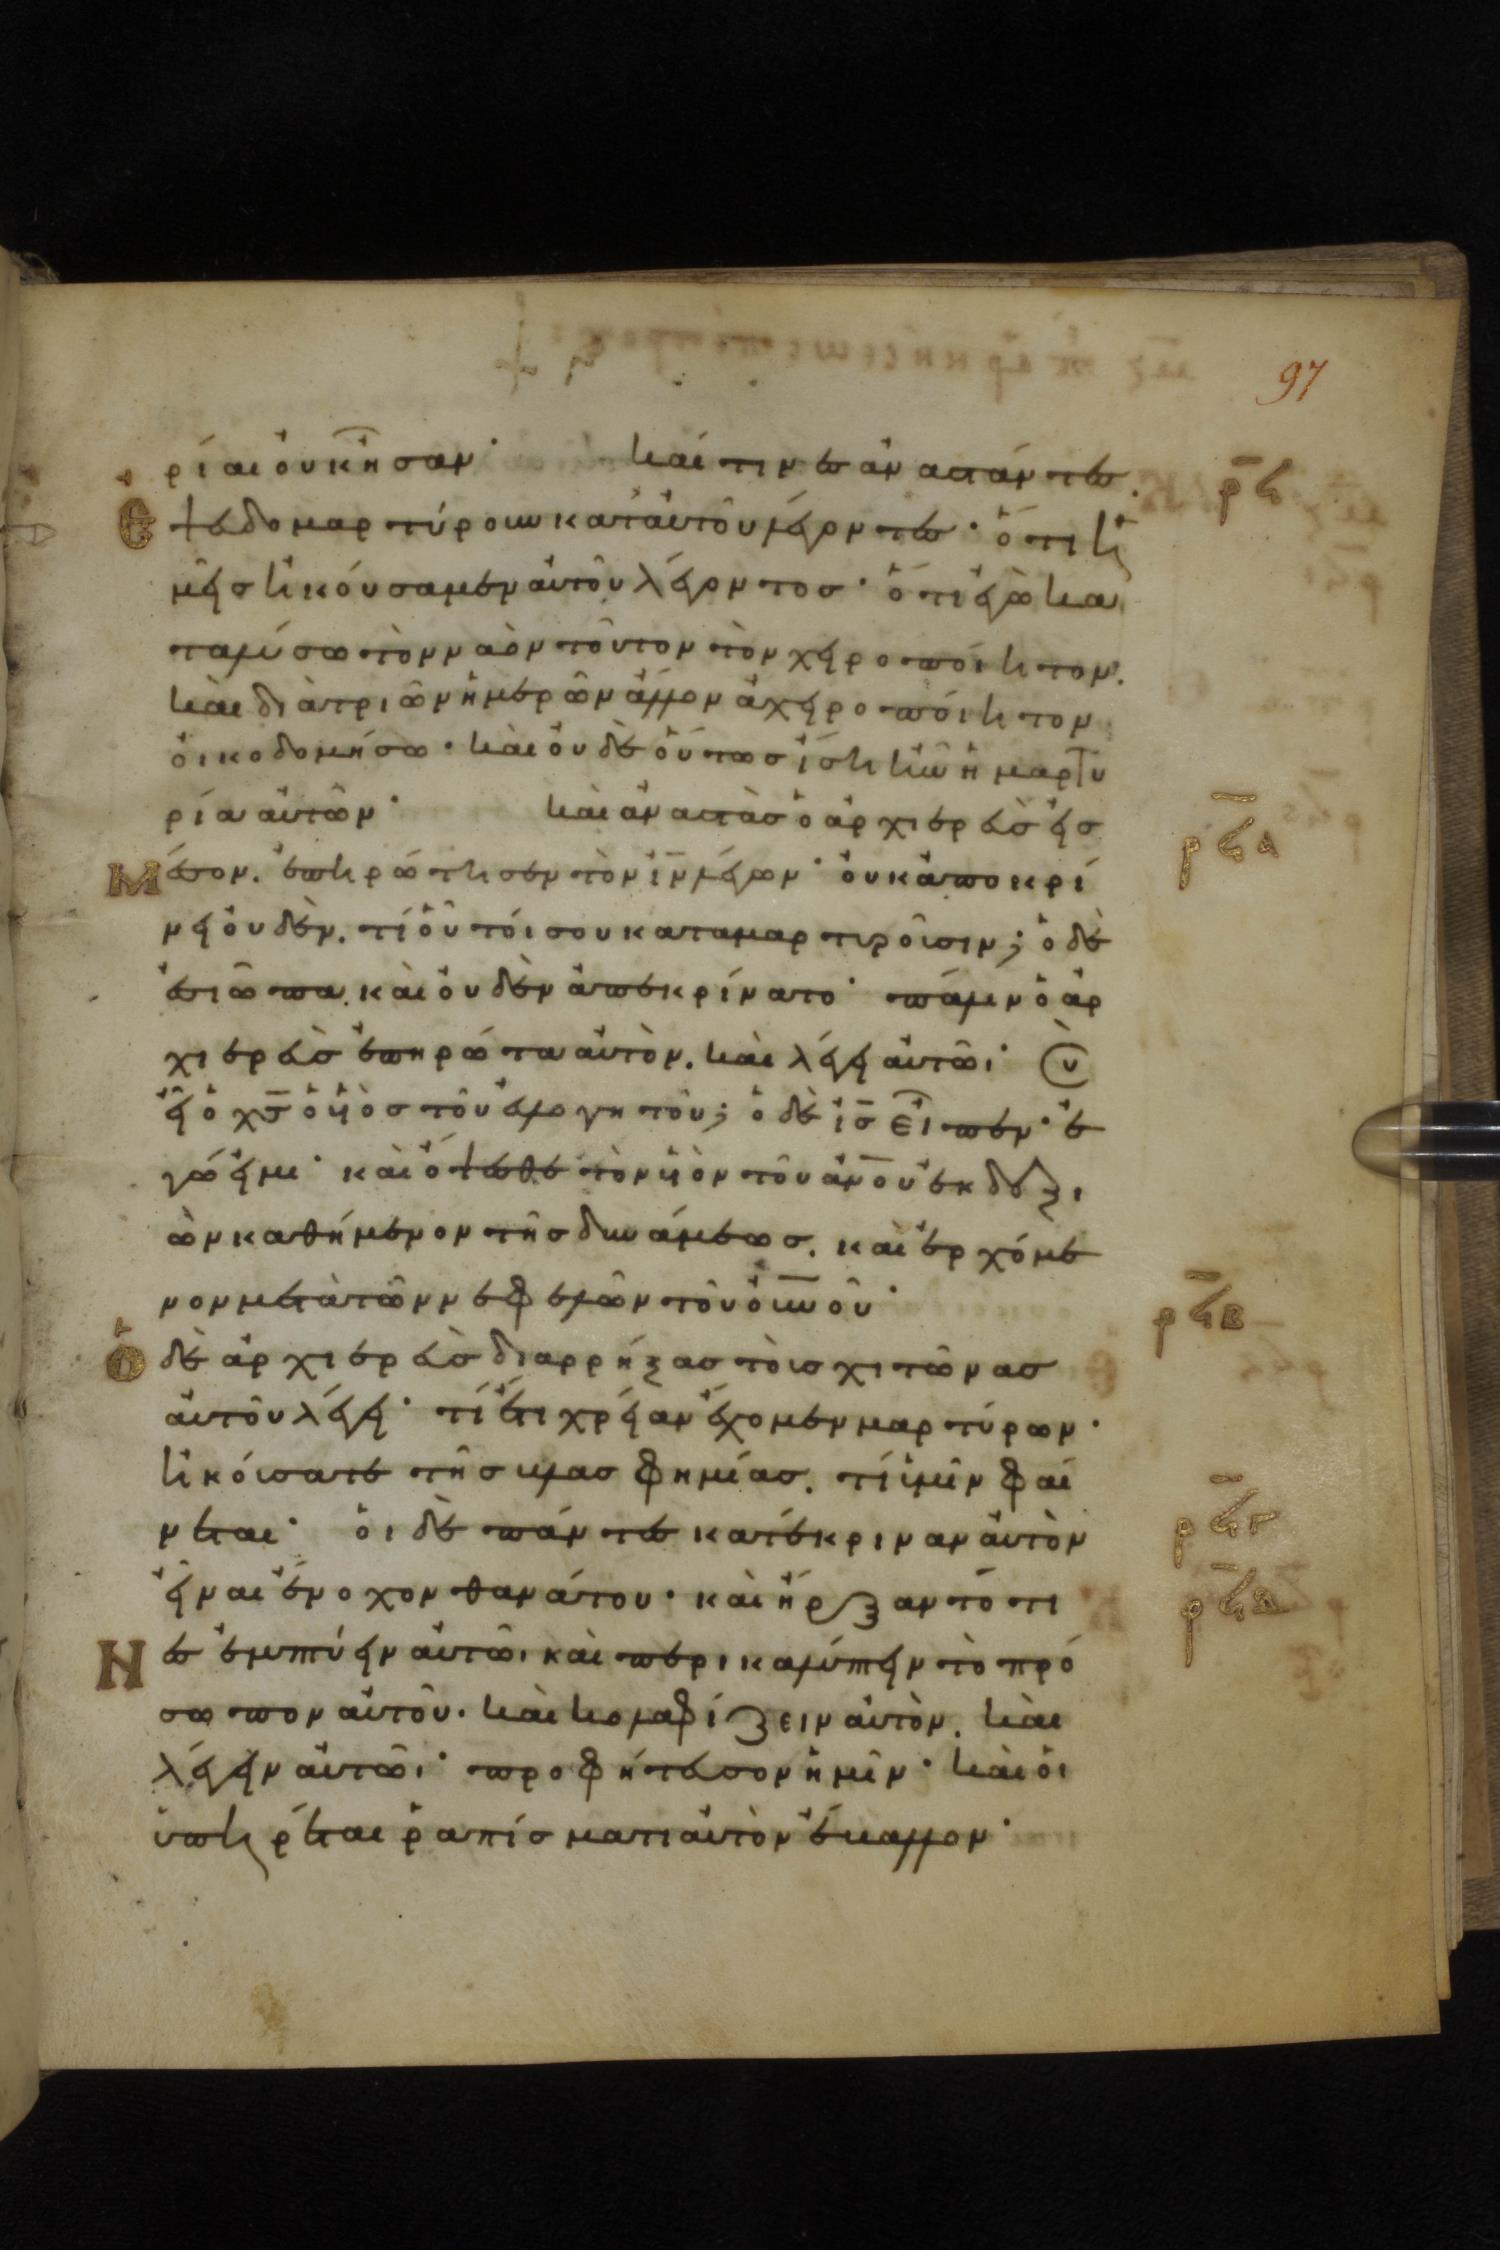 97
ρίαι ὀυκ ἦσαν· καί τινες ἀναστάντες. ρϟ
Ἐψευδομαρτύρουν κατ' ἀυτοῦ λέγοντες· ὅτι ἡ
μεῖς ἠκόυσαμεν ἀυτοῦ λέγοντος· ὅτι ἐγὼ κα
ταλύσω τὸν ναὸν τοῦτον τὸν χειροποίητον.
καὶ διὰ τριῶν ἡμερῶν ἄλλον ἀχειροποίητον
ὀικοδομήσω· καὶ ὀυδὲ ὅυτως ἴση ἦν ἡ μαρτυ
ρία ἀυτῶν· καὶ ἀναστὰς ὁ ἀρχιερεὺς εἰς ρϟα
Μέσον. ἐπηρώτησεν τὸν ιν λέγων· ὀυκ ἀποκρί
νει ὀυδὲν. τί οὗτοί σου καταμαρτυροῦσιν; ὁ δὲ
ἐσιῶπα. καὶ ὀυδὲν ἀπεκρίνατο· πάλιν ὁ ἀρ
χιερεὺς ἐπηρώτα ἀυτὸν. καὶ λέγει ἀυτῶι· σὺ
εἶ ὁ χς ὁ υἱὸς τοῦ ἐυλογητοῦ; ὁ δὲ ις εἶπεν· ἐ
γώ εἰμι· καὶ ὄψεσθε τὸν υἱὸν τοῦ ἀνου ἐκ δεξι
ῶν καθήμενον τῆς δυνάμεως. καὶ ἐρχόμε
νον μετὰ τῶν νεφελῶν τοῦ ὀυνοῦ· ρϟβ
Ὁ δὲ ἀρχιερεὺς διαρρήξας τοὺς χιτῶνας
ἀυτοῦ λέγει· τί ἔτι χρείαν ἔχομεν μαρτύρων·
ἠκόυσατε τῆς βλασφημίας. τί ὑμῖν φαί
νεται· ὁι δὲ πάντες κατέκριναν ἀυτὸν ρϟγ
εἶναι ἔνοχον θανάτου· καὶ ἤρξαντό τι ρϟδ
Νες ἐμπτύειν ἀυτῶι καὶ περικαλύπτειν τὸ πρό
σωπον ἀυτοῦ. καὶ κολαφίζειν ἀυτὸν. καὶ
λέγειν ἀυτῶι· προφήτευσον ἡμῖν· καὶ ὁι
ὑπηρέται ῥαπίσμασιν ἀυτὸν ἔβαλλον·